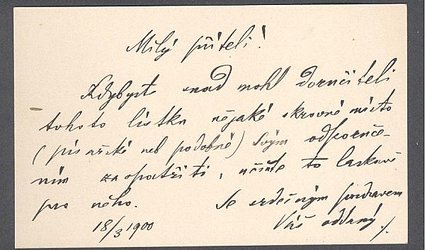 Milý příteli!
Kdybyste snad mohl doručiteli
tohoto lístku nějaké skrovné místo
(písařské neb podobné) svým odporuče-
ním zaopatřiti, učiňte to laskavě
pro něho. Se srdečným pozdravem
18/3 1900 Váš oddaný